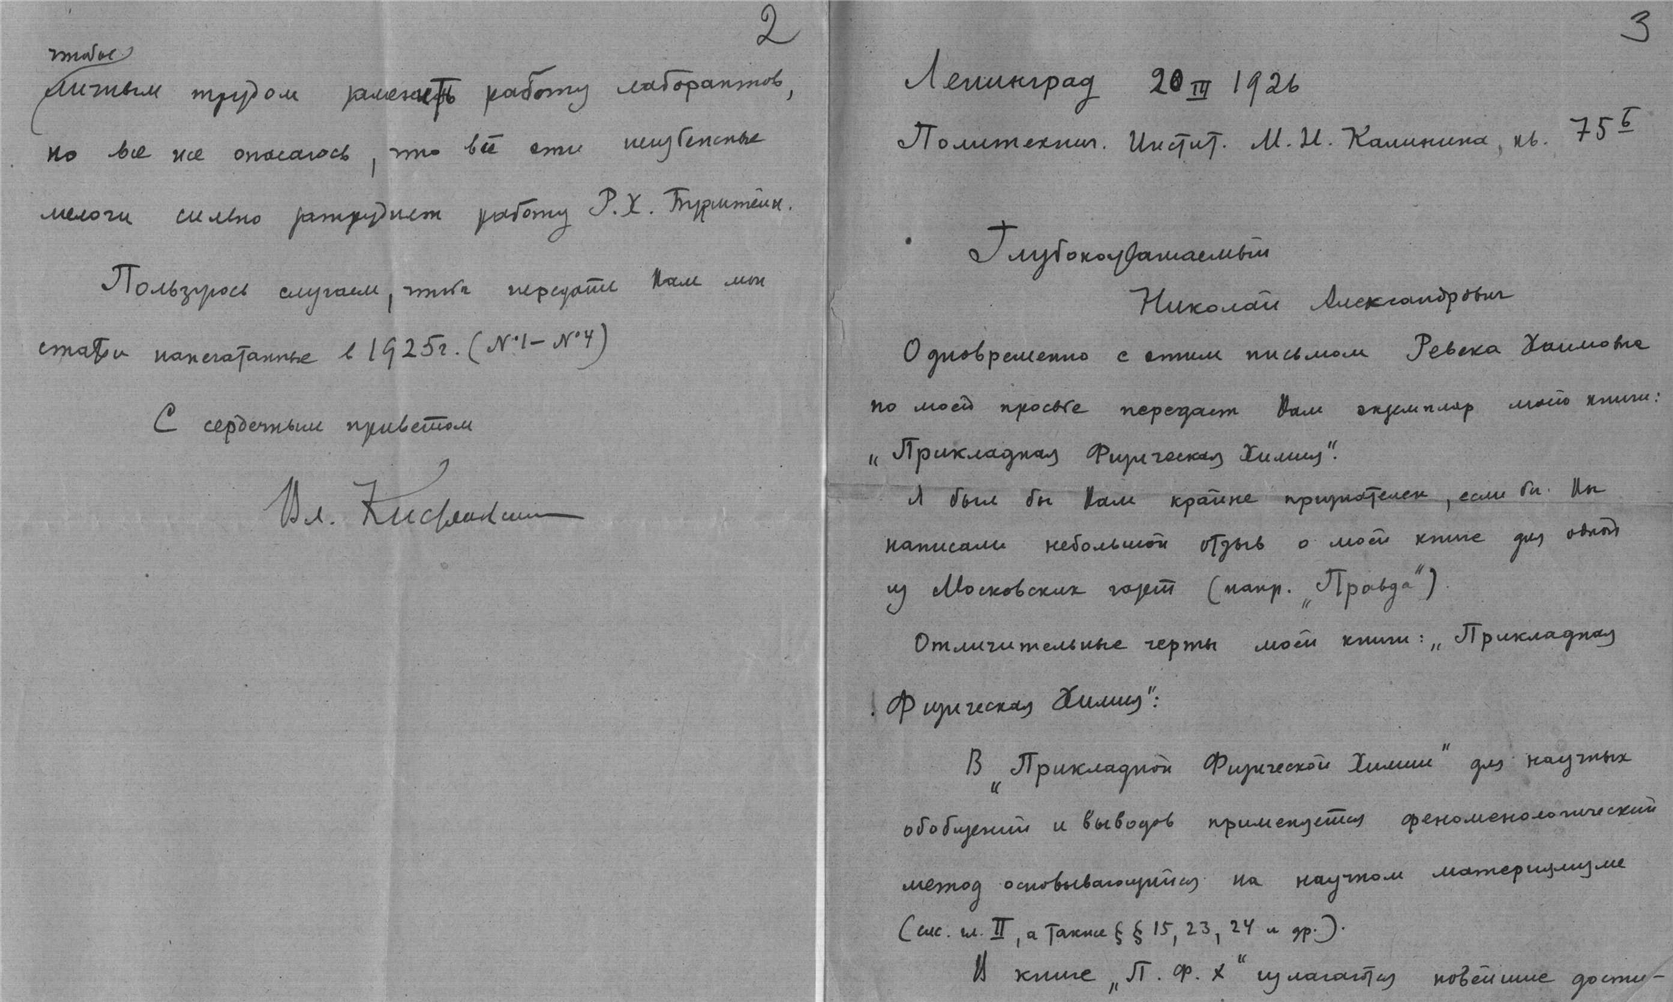 2
чтобы
личным трудом заменить работу лаборантов,
но все же опасаюсь, что все эти неизбежные
мелочи сильно затруднят работу Р. Х. Бурштейн.
Пользуюсь случаем, чтобы передать Вам мои
статьи напечатанные в 1925г. (№1–№4)
С сердечным приветом
Вл. Кистяковский
3
Ленинград 20 III 1926
Политехнич. Инстит. М. И. Калинина, кв. 75 б
Глубокоуважаемый
Николай Александрович
Одновременно с этим письмом Ревека Хаимовна
по моей просьбе передаст Вам экземпляр моей книги:
„Прикладная Физическая Химия".
Я был бы Вам крайне признателен, если бы Вы
написали небольшой отзыв о моей книге для одной
из Московских газет (напр. „Правда")
Отличительные черты моей книги: „Прикладная
Физическая Химия":
В „Прикладной Физической Химии" для научных
обобщений и выводов применяется феноменологический
метод основывающийся на научном материализме
(см. гл. II, а также § § 15, 23, 24 и др.).
В книге „П. Ф. Х" излагаются новейшие дости-